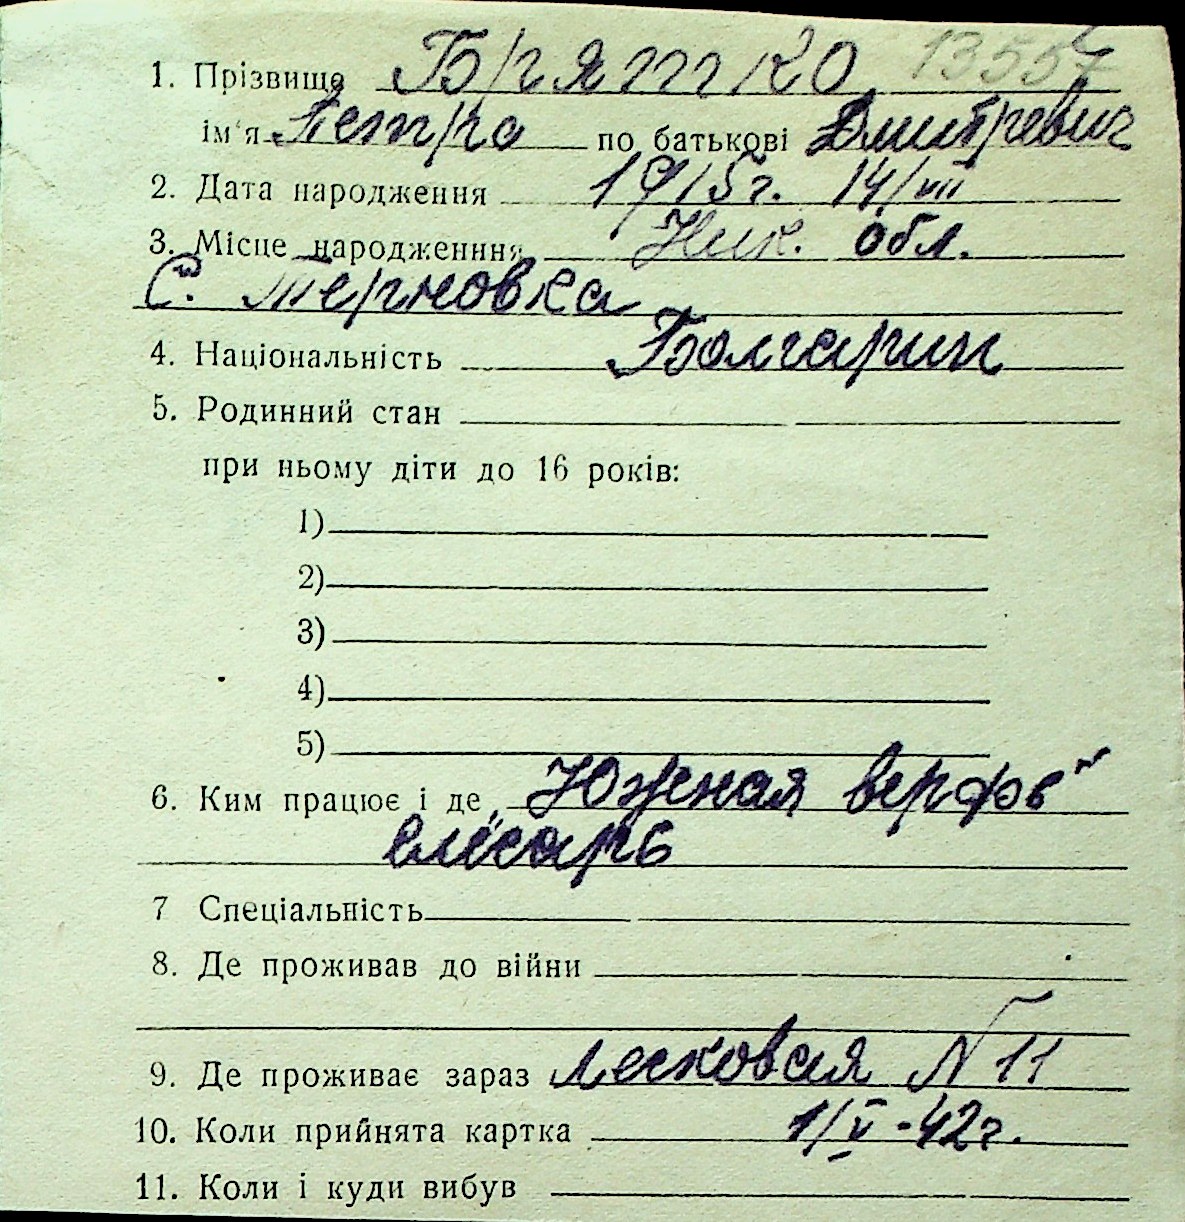 1. Прізвище Брятко 13557
ім'я Петро по батькові Дмитревич
2. Дата народження 1915г. 14/VII
3. Місце народженння Ник. обл.
С. Терновка
4. Національність Болгарин
5. Родинний стан
при ньому діти до 16 років:
1)
2)
3)
4)
5)
6. Ким працює і де „Южная верфь"
слесарь
7 Спеціальність
8. Де проживав до війни
9. Де проживає зараз Лесковая N 11
10. Коли прийнята картка 1/V-42г.
11. Коли і куди вибув